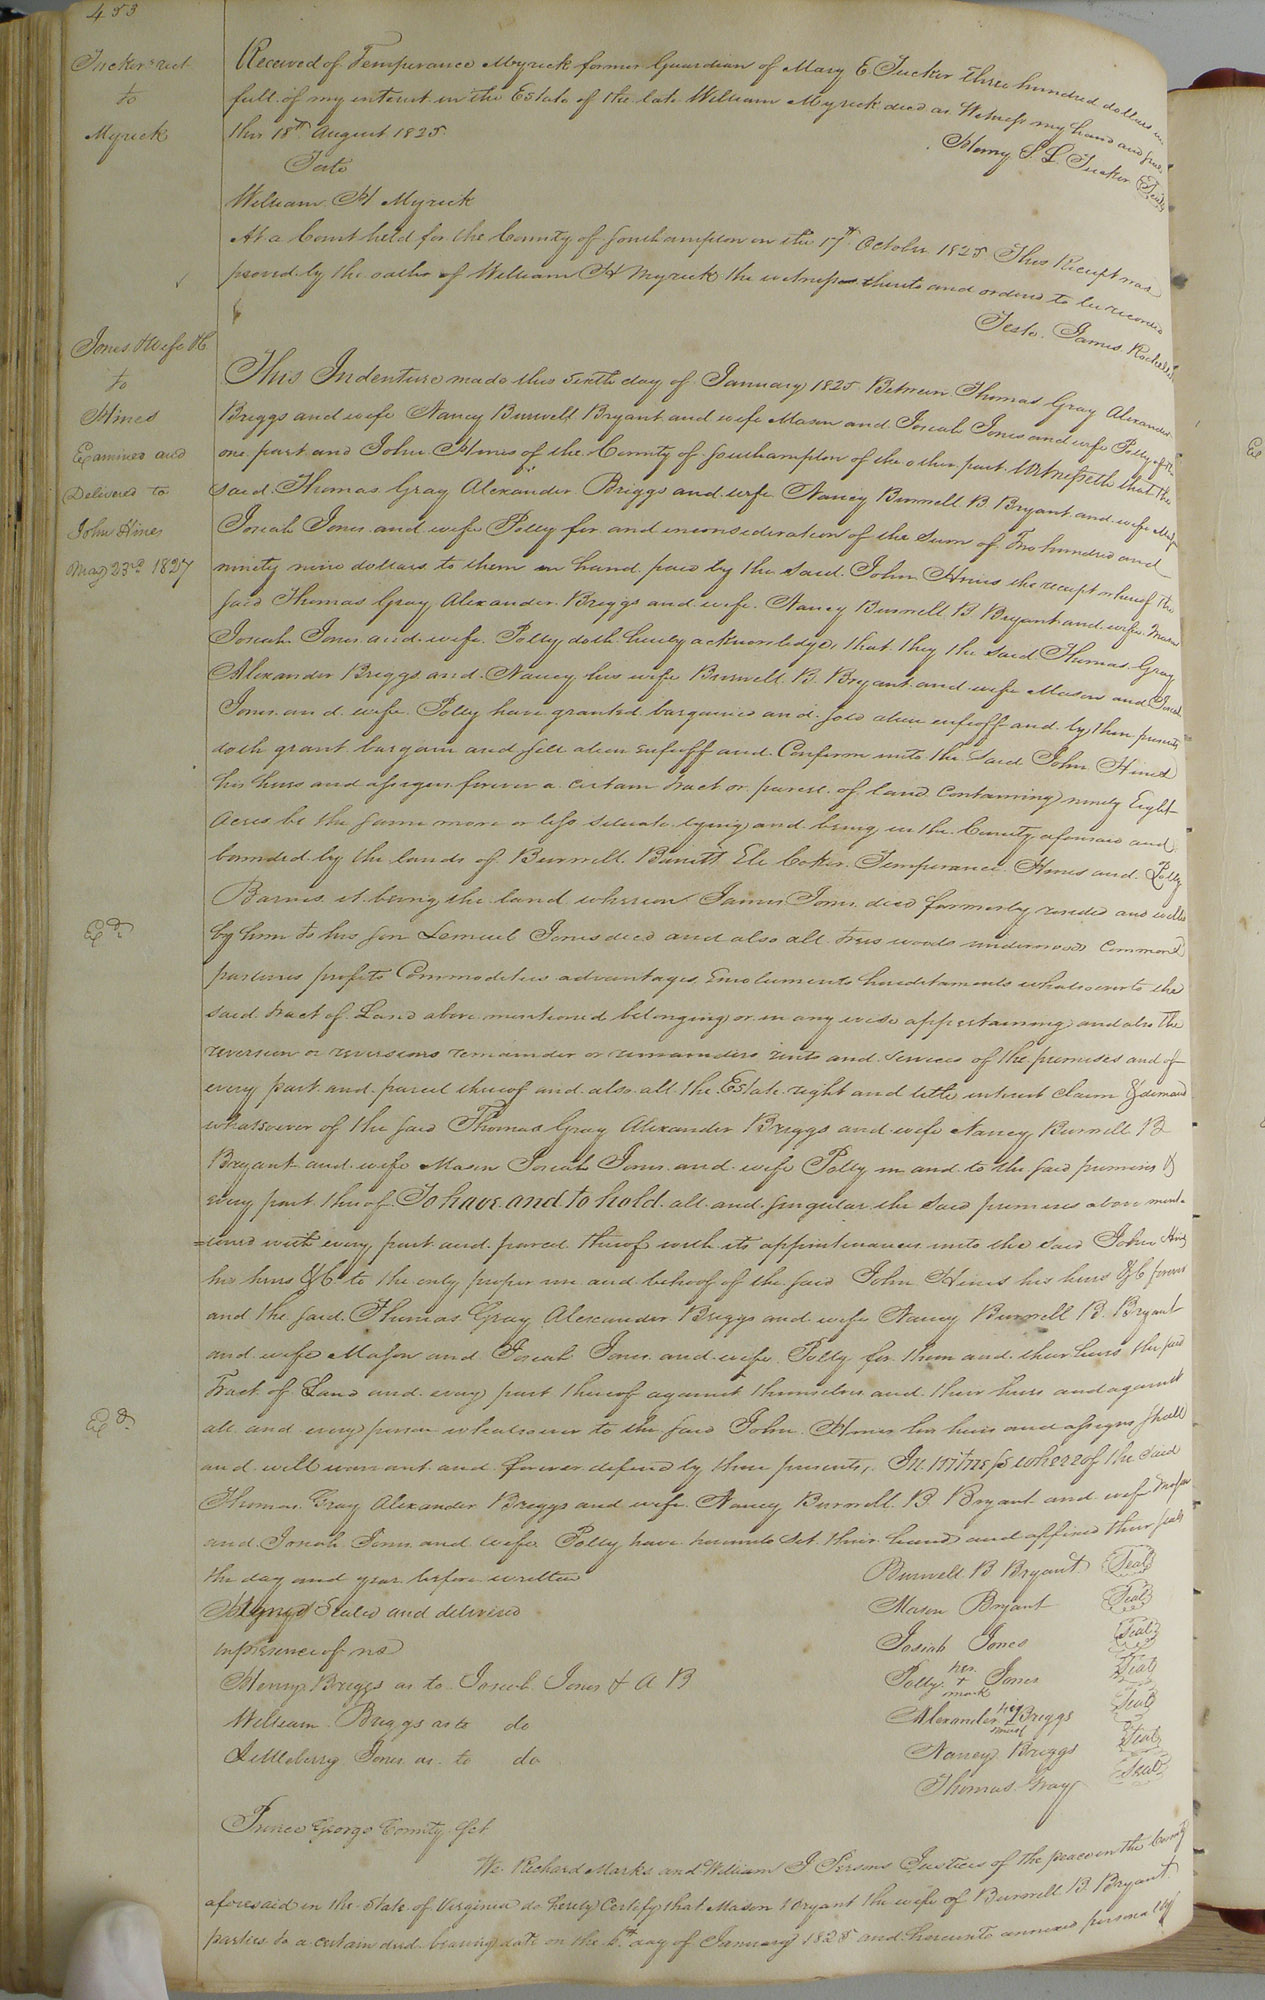 453
Tucker rect
to
Myrick
Received of Temperance Myrick former Guardian of Mary E. Tucker three hundred dollars in
full of my interest in the Estate of the late William Myrick decd as Witness my hand and seal
this 18th August 1825
Henry S. L. Tucker Seal
Teste
William H Myrick
At a Court held for the County of Southampton on the 17th October 1825 This Receipt was
proved by the oaths of William H Myrick the witness thereto and ordered to be recorded
Teste. James Rochelle
Jones & wife &C
to
Hines
Examined and
Delivered to
John Hines
May 23rd 1827
This Indenture made this sixth day of January 1825 Between Thomas Gray Alexander
Briggs and wife Nancy Burwell Bryant and wife Mason and Josiah Jones and wife Polly of the
one part and John Hines of the County of Southampton of the other part Witnesseth that the
said Thomas Gray Alexander Briggs and wife Nancy Burwell B. Bryant and wife
Josiah Jones and wife Polly for and inconsideration of the Sum of Two hundred and
ninety nine dollars to them in hand paid by the said John Hines the receipt whereof the
said Thomas Gray Alexander Briggs and wife Nancy Burwell B. Bryant and wife Mason
Josiah Jones and wife Polly doth hereby acknowledge, that they the said Thomas Gray
Alexander Briggs and Nancy his wife Burwell B. Bryant and wife Mason and Josiah
Jones and wife Polly have granted bargained and sold alien enfeoff and by these presents
doth grant bargain and sell alien enfeoff and Confirm unto the said John Hines
his heirs and assigns forever a certain tract or parcel of land Containing ninety Eight
Acres be the same more or less situate lying and being in the County aforesaid and
bounded by the lands of Burwell Barrett Eli Coker Temperance Hines and Polly
Barnes it being the land whereon James Jones decd formerly resided and
by him to his son Lemuel Jones decd and also all trees woods underwoods Commons
pastures profits Commodities advantages Emoluments hereditaments whatsoever to the
said tract of Land above mentioned belonging or in any wise appertaining and also the
reversion or reversions remainder or remainders rents and services of the premises and of
every part and parcel thereof and also all the Estate right and title interest claim & demand
whatsoever of the said Thomas Gray Alexander Briggs and wife Nancy Burwell B
Bryant and wife Mason Josiah Jones and wife Polly in and to the said premises &
every part thereof To have and to hold all and singular the said premises above ment-
=ioned with every part and parcel thereof with its appurtenances unto the said John Hines
his heirs &C to the only proper use and behoof of the said John Hines his heirs &C forever
and the said Thomas Gray Alexander Briggs and wife Nancy Burwell B. Bryant
and wife Mason and Josiah Jones and wife Polly for them and their heirs the said
Tract of Land and every part thereof against themselves and their heirs and against
all and every person whatsoever to the said John Hines his heirs and assigns shall
and will warrant and forever defend by these presents, In witness whereof the said
Thomas Gray Alexander Briggs and wife Nancy Burwell B. Bryant and wife Mason
and Josiah Jones and wife Polly have hereunto set their hand and affixed their seals
the day and year before written
Burwell B Bryant Seal
Signed Sealed and delivered
Mason Bryant Seal
in presence of us
Josiah Jones Seal
Henry Briggs as to Josiah Jones & A B
Polly her + mark Jones Seal
William Briggs as to do
Alexander his mark Briggs Seal
Littleberry Jones as to do
Nancy Briggs Seal
Thomas Gray Seal
Prince George County Sct
We Richard Marks and William J Persons Justices of the peace in the County
aforesaid in the State of Virginia do hereby Certify that Mason Bryant the wife of Burwell B. Bryant
parties to a certain deed bearing date on the 6th day of January 1825 and hereunto annexed personally